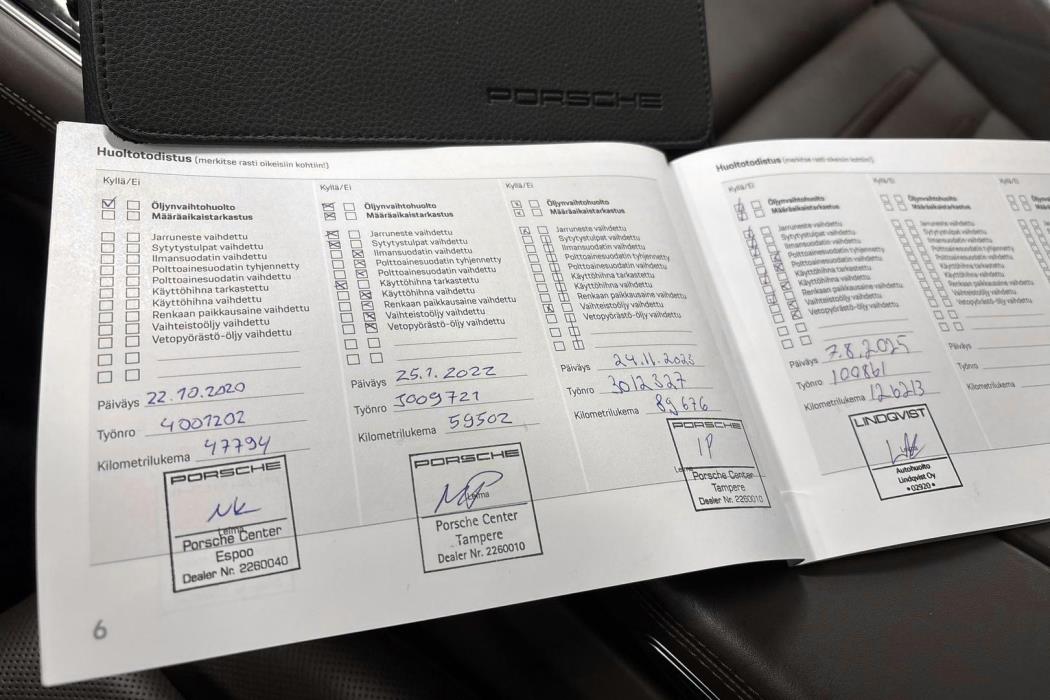 PORSCHE
Huoltotodistus (merkitse rasti oikeisiin kohtiin!)
Kyllä/Ei
Öljynvaihtohuolto
Määräaikaistarkastus
Jarruneste vaihdettu
Sytytystulpat vaihdettu
Ilmansuodatin vaihdettu
Polttoainesuodatin tyhjennetty
Polttoainesuodatin vaihdettu
Käyttöhihna tarkastettu
Käyttöhihna vaihdettu
Renkaan paikkausaine vaihdettu
Vaihteistoöljy vaihdettu
Vetopyörästö-öljy vaihdettu
Päiväys 22.10.2020
Työnro 4001202
Kilometrilukema 47794
PORSCHE
NK
Leima
Porsche Center
Espoo
Dealer Nr. 2260040
6
Kyllä/Ei
Öljynvaihtohuolto
Määräaikaistarkastus
Jarruneste vaihdettu
Sytytystulpat vaihdettu
Ilmansuodatin vaihdettu
Polttoainesuodatin tyhjennetty
Polttoainesuodatin vaihdettu
Käyttöhihna tarkastettu
Käyttöhihna vaihdettu
Renkaan paikkausaine vaihdettu
Vaihteistoöljy vaihdettu
Vetopyörästö-öljy vaihdettu
Päiväys 25.1.2022
Työnro 3009721
Kilometrilukema 59502
PORSCHE
Leima
Porsche Center
Tampere
Dealer Nr. 2260010
Kyllä/Ei
Öljynvaihtohuolto
Määräaikaistarkastus
Jarruneste vaihdettu
Sytytystulpat vaihdettu
Ilmansuodatin vaihdettu
Polttoainesuodatin tyhjennetty
Polttoainesuodatin vaihdettu
Käyttöhihna tarkastettu
Käyttöhihna vaihdettu
Renkaan paikkausaine vaihdettu
Vaihteistoöljy vaihdettu
Vetopyörästö-öljy vaihdettu
Päiväys 24.11.2023
Työnro 3012327
Kilometrilukema 89676
PORSCHE
IP
Porsche Center
Tampere
Dealer Nr. 2260010
Huoltotodistus (merkitse rasti oikeisiin kohtiin!)
Kyllä/Ei
Öljynvaihtohuolto
Määräaikaistarkastus
Jarruneste vaihdettu
Sytytystulpat vaihdettu
Ilmansuodatin vaihdettu
Polttoainesuodatin tyhjennetty
Polttoainesuodatin vaihdettu
Käyttöhihna tarkastettu
Käyttöhihna vaihdettu
Renkaan paikkausaine vaihdettu
Vaihteistoöljy vaihdettu
Vetopyörästö-öljy vaihdettu
Päiväys 7.8.2025
Työnro 100861
Kilometrilukema 126213
LINDQVIST
Autohuolto
Lindqvist Oy
•02920•
Kyllä/Ei
Öljynvaihtohuolto
Määräaikaistarkastus
Jarruneste vaihdettu
Sytytystulpat vaihdettu
Ilmansuodatin vaihdettu
Polttoainesuodatin tyhjennetty
Polttoainesuodatin vaihdettu
Käyttöhihna tarkastettu
Käyttöhihna vaihdettu
Renkaan paikkausaine vaihdettu
Vaihteistoöljy vaihdettu
Vetopyörästö-öljy vaihdettu
Päiväys
Työnro
Kilometrilukema
Kyllä/Ei